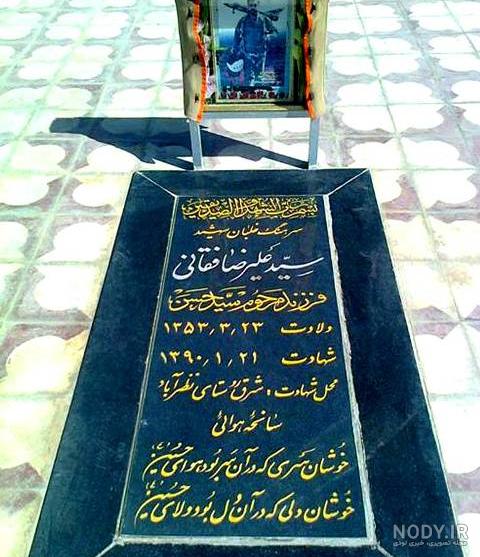 بسم رب الشهداء و الصدیقین
سرهنگ خلبان شهید
سید علیرضا فقانی
فرزند مرحوم سید حسن
ولادت ۱۳۵۳٫۳٫۲۳
شهادت ۱۳۹۰٫۱٫۲۱
محل شهادت : شرق روستای نظرآباد
سانحه هوائی
خوشان سری که در آن سر بود هوای حسین
خوشان دلی که در آن دل بود ولای حسین
NODY.IR
مجله تصویری، خبری نودی